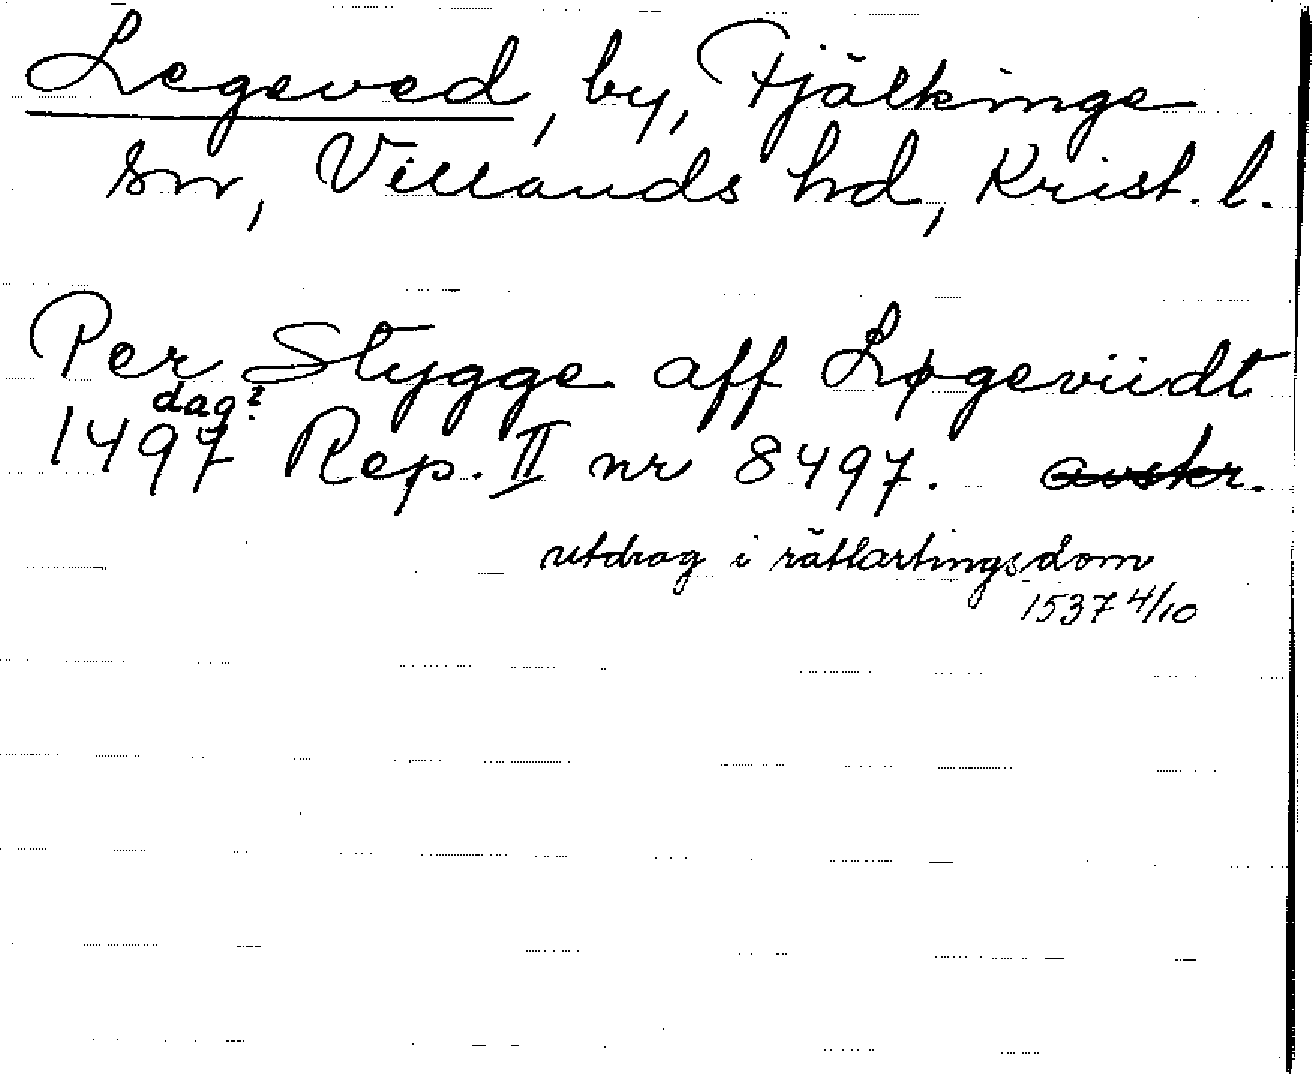 Legeved, by, Fjälkinge
sn, Villands hd, Krist. l.
Per Stygge aff Løgeviidt
dag?
1497 Rep. II nr 8497. avskr.
utdrag i rättartingsdom
1537 4/10